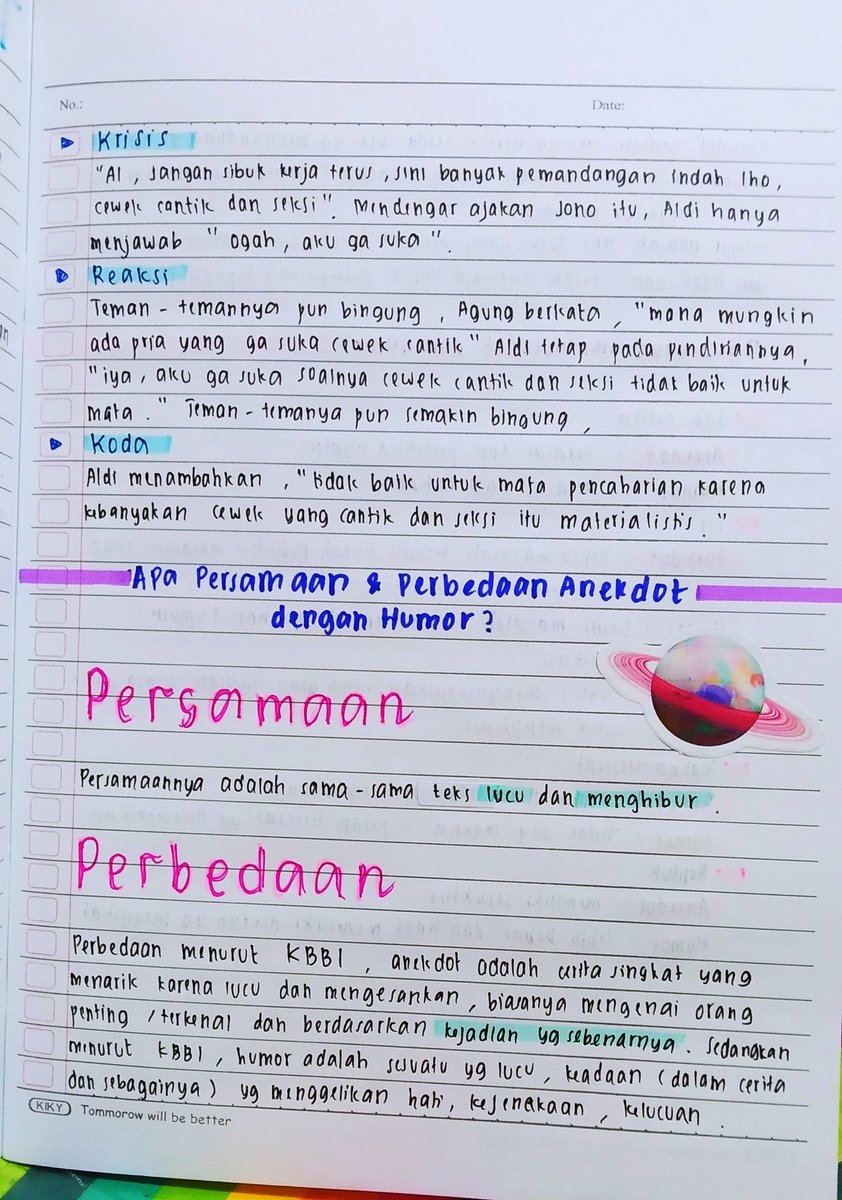 No.: Date:
▶ Krisis
"Al, jangan sibuk kerja terus, sini banyak pemandangan indah lho,
cewek cantik dan seksi". Mendengar ajakan Jono itu, Aldi hanya
menjawab "ogah, aku ga suka".
▶ Reaksi
Teman-temannya pun bingung, Agung berkata, "mana mungkin
ada pria yang ga suka cewek cantik" Aldi tetap pada pendiriannya,
"iya, aku ga suka soalnya cewek cantik dan seksi tidak baik untuk
mata." Teman-temanya pun semakin bingung,
▶ Koda
Aldi menambahkan, "tidak baik untuk mata pencaharian karena
kebanyakan cewek yang cantik dan seksi itu materialistis."
Apa Persamaan & Perbedaan Anekdot
dengan Humor?
Persamaan
Persamaannya adalah sama-sama teks lucu dan menghibur.
Perbedaan
Perbedaan menurut KBBI, anekdot adalah cerita singkat yang
menarik karena lucu dan mengesankan, biasanya mengenai orang
penting /terkenal dan berdasarkan kejadian yg sebenarnya. Sedangkan
menurut KBBI, humor adalah sesuatu yg lucu, keadaan (dalam cerita
dan sebagainya) yg menggelikan hati, kejenakaan, kelucuan.
KIKY Tommorow will be better